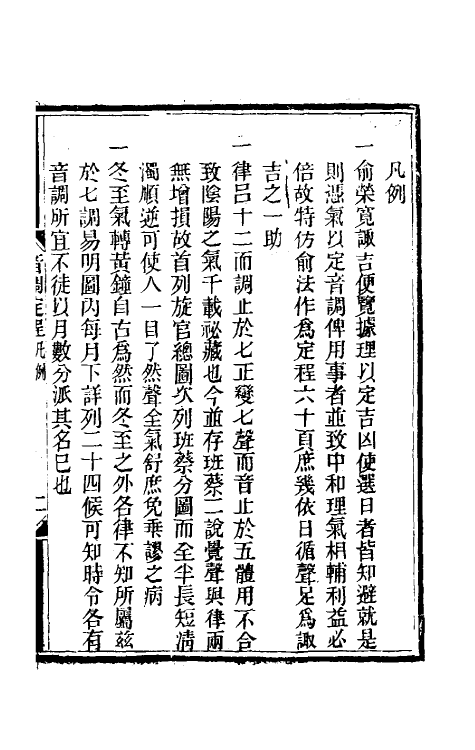 凡例
一俞榮寬諏吉便覽據理以定吉凶使選日者皆知避就是
則憑氣以定音調俾用事者並致中和理氣相輔利益必
倍故特仿俞法作爲定程六十頁庶幾依日循聲足爲諏
吉之一助
一律呂十二而調止於七正變七聲而音止於五體用不合
致陰陽之氣千載祕藏也今並存班蔡二說覺聲與律兩
無增損故首列旋宮總圖次列班蔡分圖而全半長短淸
濁順逆可使人一目了然聲全氣舒庶免乗謬之病
一冬至氣轉黃鐘自古爲然而冬至之外各律不知所屬茲
於七調易明圖內每月下詳列二十四候可知時令各有
音調所宜不徒以月數分派其名已也
音調定程凡例
二